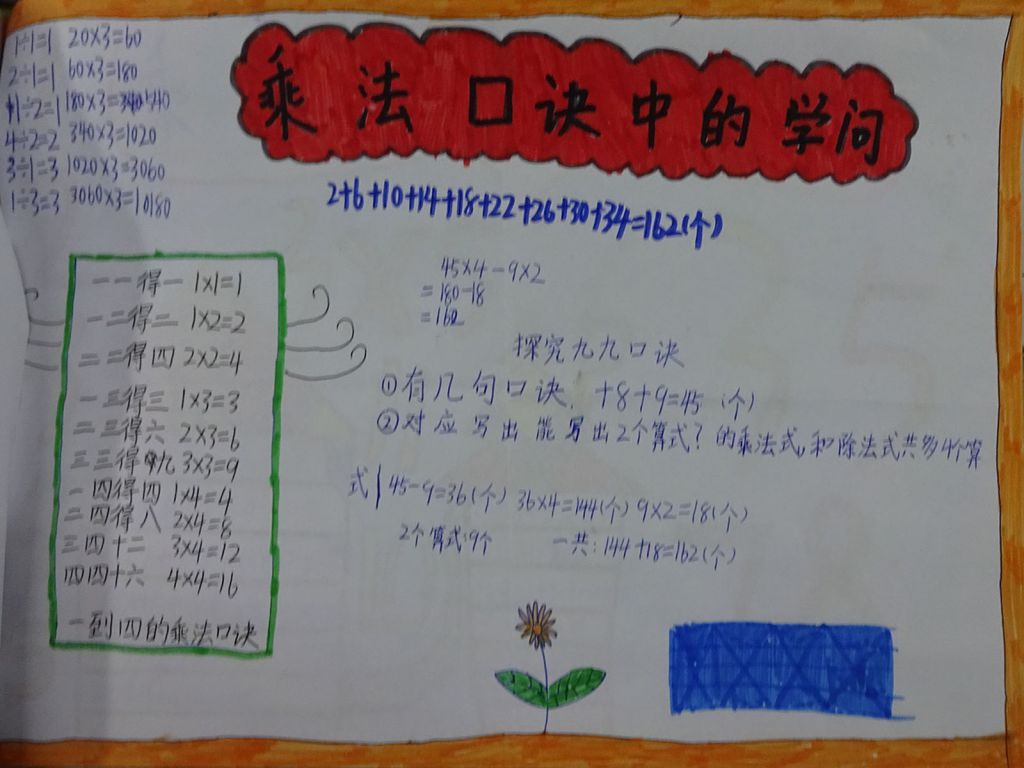 乘法口诀中的学问
1÷1=1 20×3=60
2÷1=1 60×3=180
1÷2=1 180×3=340
4÷2=2 340×3=1020
3÷1=3 1020×3=3060
1÷3=3 3060×3=10180
2+6+10+14+18+22+26+30+34=162(个)
一一得一 1×1=1
一二得二 1×2=2
二二得四 2×2=4
一三得三 1×3=3
二三得六 2×3=6
三三得九 3×3=9
一四得四 1×4=4
二四得八 2×4=8
三四十二 3×4=12
四四十六 4×4=16
一到四的乘法口诀
45×4-9×2
=180-18
=162
探究九九口诀
①有几句口诀. +8+9=45 (个)
②对应写出能写出2个算式?的乘法式,和除法式共多4个算
式 45-9=36(个) 36×4=144(个) 9×2=18(个)
2个算式:9个 一共:144+18=162(个)